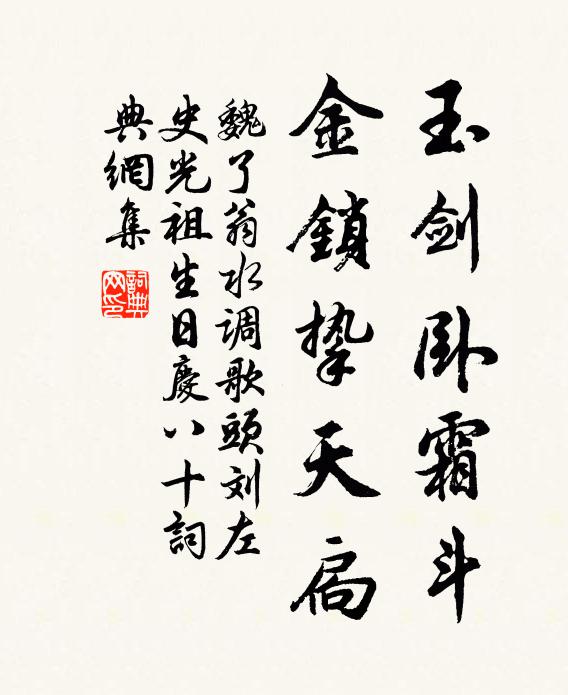 玉剑卧霜斗
金鎖掣天扃
魏了翁水调歌頭刘左
史光祖生日慶八十詞
典網集
詞典网印